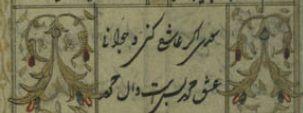 سعدی اگر عاشقی کنی و جوانی
عشق محمد بس است و آل محمد